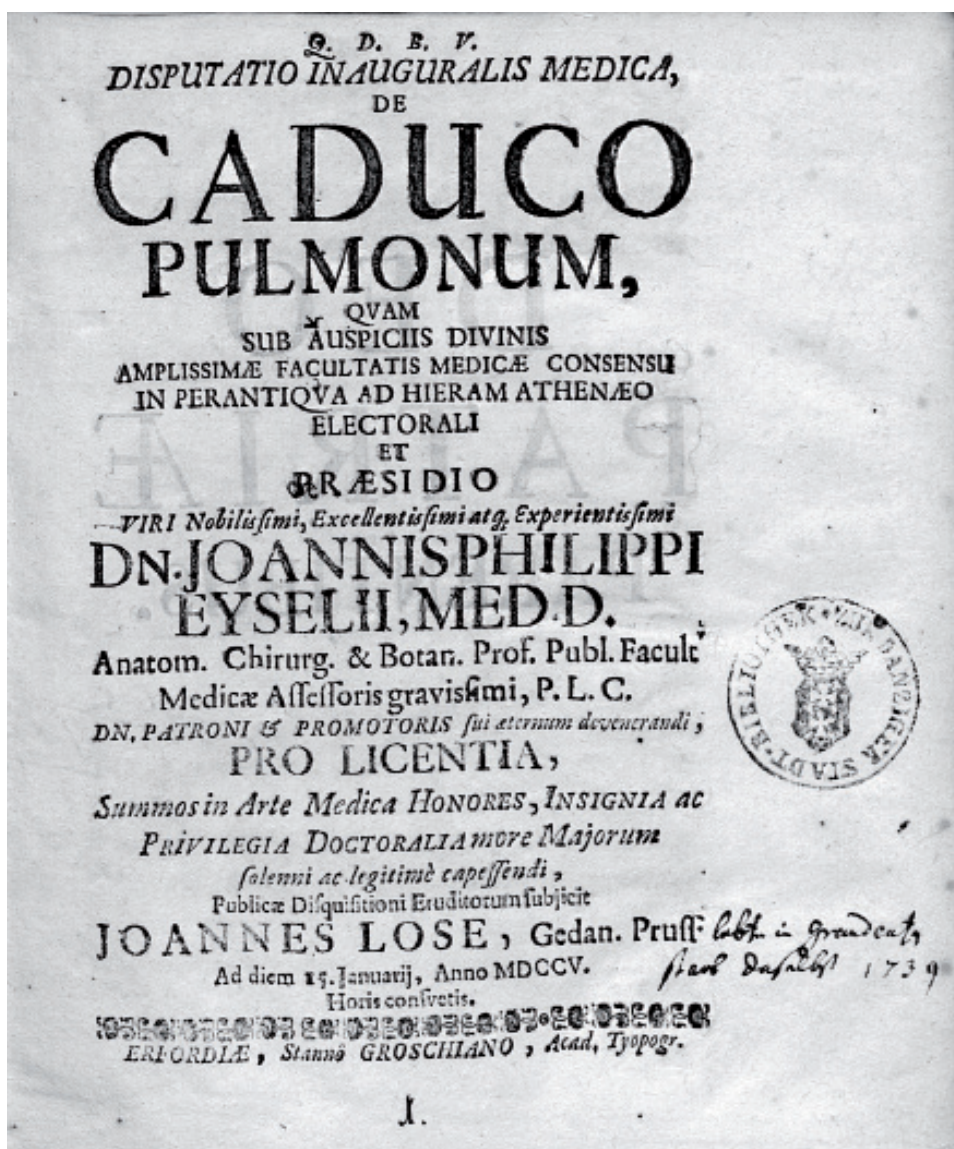 Q. D. B. V.
DISPUTATIO INAUGURALIS MEDICA,
DE
CADUCO
PULMONUM,
QVAM
SUB AUSPICIIS DIVINIS
AMPLISSIMÆ FACULTATIS MEDICÆ CONSENSU
IN PERANTIQVA AD HIERAM ATHENÆO
ELECTORALI
ET
PRÆSIDIO
VIRI Nobilisſimi, Excellentisſimi atq; Experientisſimi
DN. JOANNIS PHILIPPI
EYSELII, MED. D.
Anatom. Chirurg. & Botan. Prof. Publ. Facult.
Medicæ Aſſeſſoris gravisſimi, P. L. C.
DN. PATRONI & PROMOTORIS ſui æternum devenerandi,
PRO LICENTIA,
Summos in Arte Medica HONORES, INSIGNIA ac
PRIVILEGIA DOCTORALIA more Majorum
ſolenni ac legitimè capeſſendi,
Publicæ Diſquiſitioni Eruditorum ſubjicit
JOANNES LOSE, Gedan. Pruſſ. lebte in Graudentz
starb daselbst 1739
Ad diem 15. Januarij, Anno MDCCV.
Horis conſvetis.
ERFORDIÆ, Stannô GROSCHIANO, Acad. Tyopogr.
1.
BIBLIOTHEK ZUR DANZIGER STADT